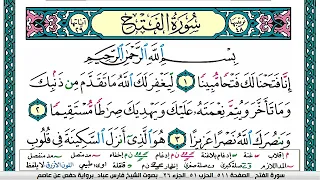 سورة الفتح
بسم الله الرحمن الرحيم
إِنَّا فَتَحْنَا لَكَ فَتْحًا مُّبِينًا ١ لِّيَغْفِرَ لَكَ اللَّهُ مَا تَقَدَّمَ مِن ذَنۢبِكَ
وَمَا تَأَخَّرَ وَيُتِمَّ نِعْمَتَهُۥ عَلَيْكَ وَيَهْدِيَكَ صِرَٰطًا مُّسْتَقِيمًا ٢
وَيَنصُرَكَ اللَّهُ نَصْرًا عَزِيزًا ٣ هُوَ الَّذِىٓ أَنزَلَ السَّكِينَةَ فِى قُلُوبِ
سورة الفتح - الصفحة ٥١١ - الحزب ٥١ - الجزء ٢٦ - بصوت الشيخ فارس عباد - برواية حفص عن عاصم